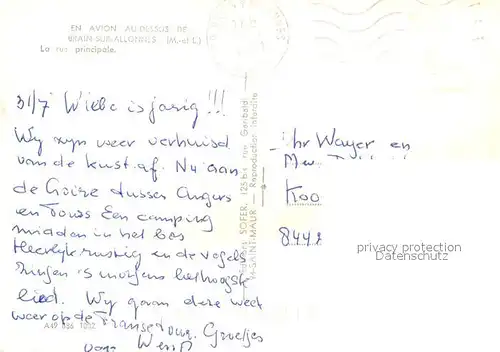 EN AVION AU-DESSUS DE
BRAIN-SUR-ALLONNES (M.-et-L.)
La rue principale.
31/7 Wiebe is jarig!!!
Wy zyn weer verhuisd
van de kust af. Nu aan
de Loire tussen Angers
en Tours Een camping
midden in het bos
Heerlyk rustig en de vogels
zingen 's morgens het hoogste
lied. Wy gaan deze week
weer op de Transetour. Groetjes
van
Editions SOFER, 125 bis rue Garibaldi
ST-SAINT-MAUR — Reproduction interdite
hr Wayer en
Mw.
Koo
privacy protection
Datenschutz
A49 036 1002